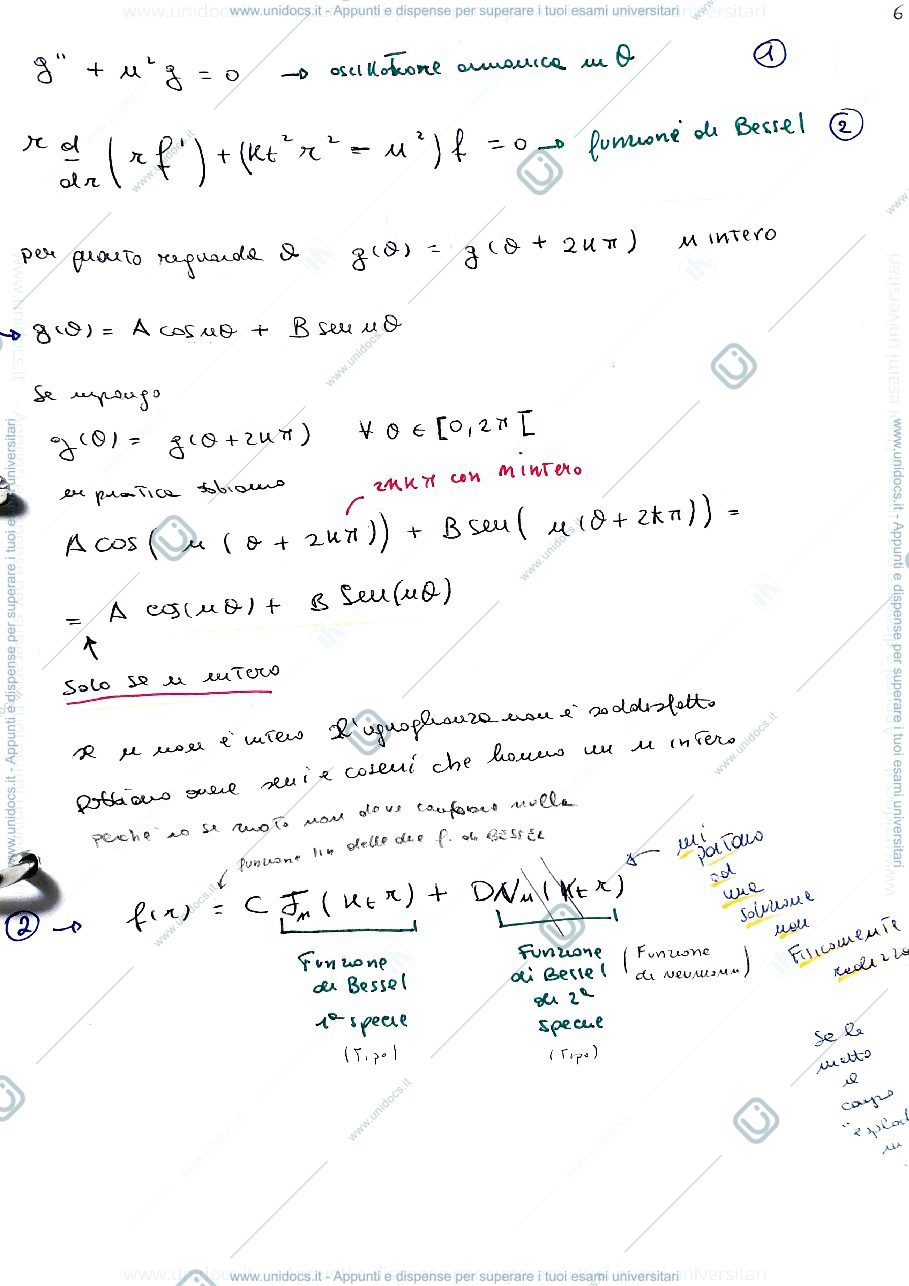 www.unidocs.it - Appunti e dispense per superare i tuoi esami universitari
6
g'' + n² g = 0 → oscillazione armonica in θ ①
r d/dr (r f') + (Kt² r² - n²) f = 0 → funzione di Bessel ②
per quanto riguarda θ g(θ) = g(θ + 2kπ) n intero
→ g(θ) = A cos nθ + B sen nθ
Se impongo
g(θ) = g(θ+2kπ) ∀ θ ∈ [0, 2π[
in pratica abbiamo 2nkπ con n intero
A cos( n ( θ + 2kπ)) + B sen( n (θ + 2kπ)) =
= A cos(nθ) + B sen(nθ)
↑
Solo se n intero
se n non è intero l'uguaglianza non è soddisfatta
possiamo avere seni e coseni che hanno un n intero
perché io se ruoto non deve cambiare nulla
funzione lin delle due f. di BESSEL
② → f(r) = C Jn (Kt r) + D Nn (Kt r)
mi
portano
ad
una
soluzione
non
Fisicamente
Funzione
di Bessel
1ª specie
(Tipo)
Funzione
di Bessel
di 2ª
specie
(Tipo)
(Funzione
di Neumann)
se la
metto
il
campo
www.unidocs.it - Appunti e dispense per superare i tuoi esami universitari